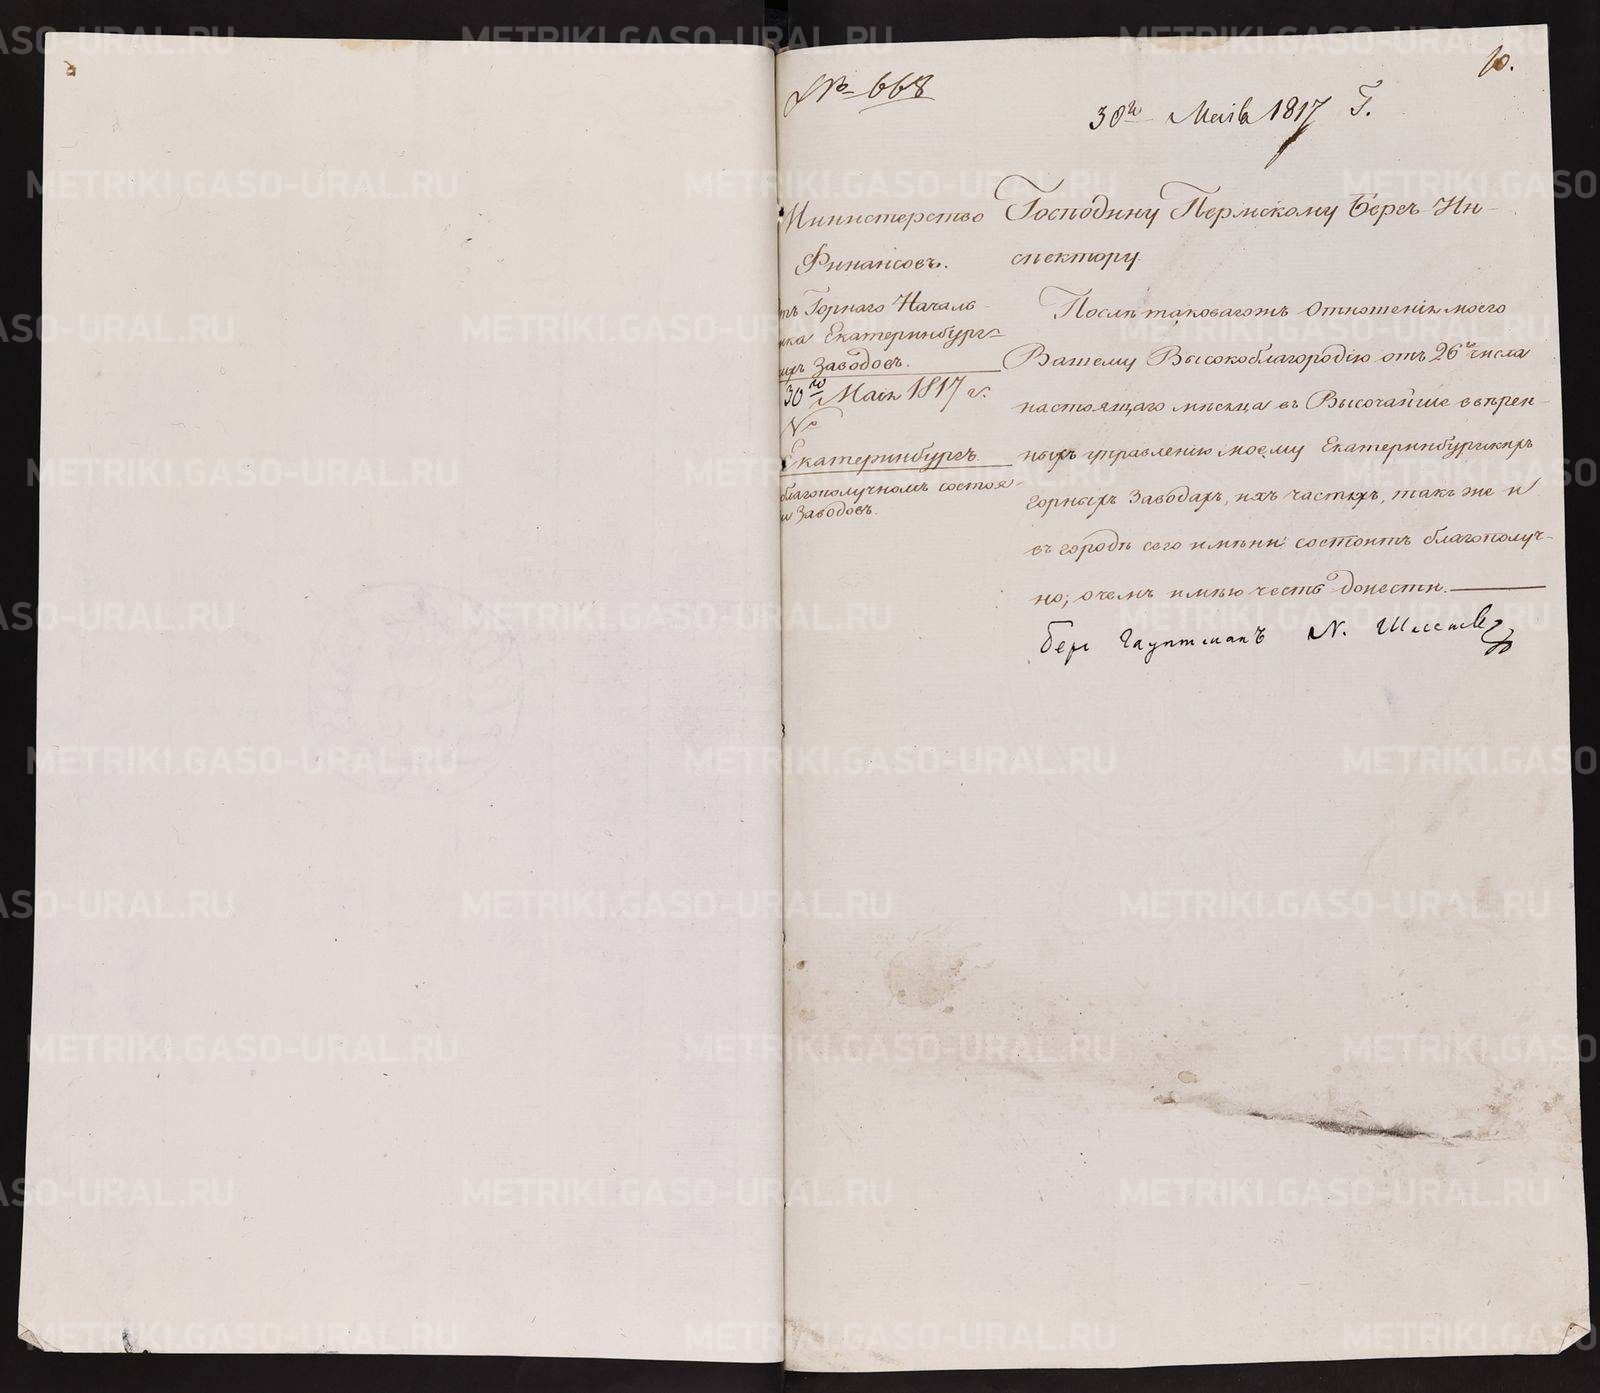 10.
№ 668
30го Маія 1817 Г.
Министерство
Финансовъ.
тъ Горнаго Началь
ика Екатеринбург=
ихъ Заводовъ.
30го Маія 1817 г.
№
Екатеринбургъ.
благополучномъ состоя-
и Заводовъ.
Господину Пермскому Бергъ-Ин-
спектору.
Послѣ таковагожъ отношенія моего
Вашему Высокоблагородію отъ 26го числа
настоящаго мѣсяца въ Высочайше ввѣрен-
ныхъ управленію моему Екатеринбургскихъ
горныхъ Заводахъ, ихъ частяхъ, такъ же и
въ городѣ сего имѣни состоитъ благополуч-
но; очемъ имѣю честь донести.
берг гауптманъ Н.
METRIKI.GASO-URAL.RU